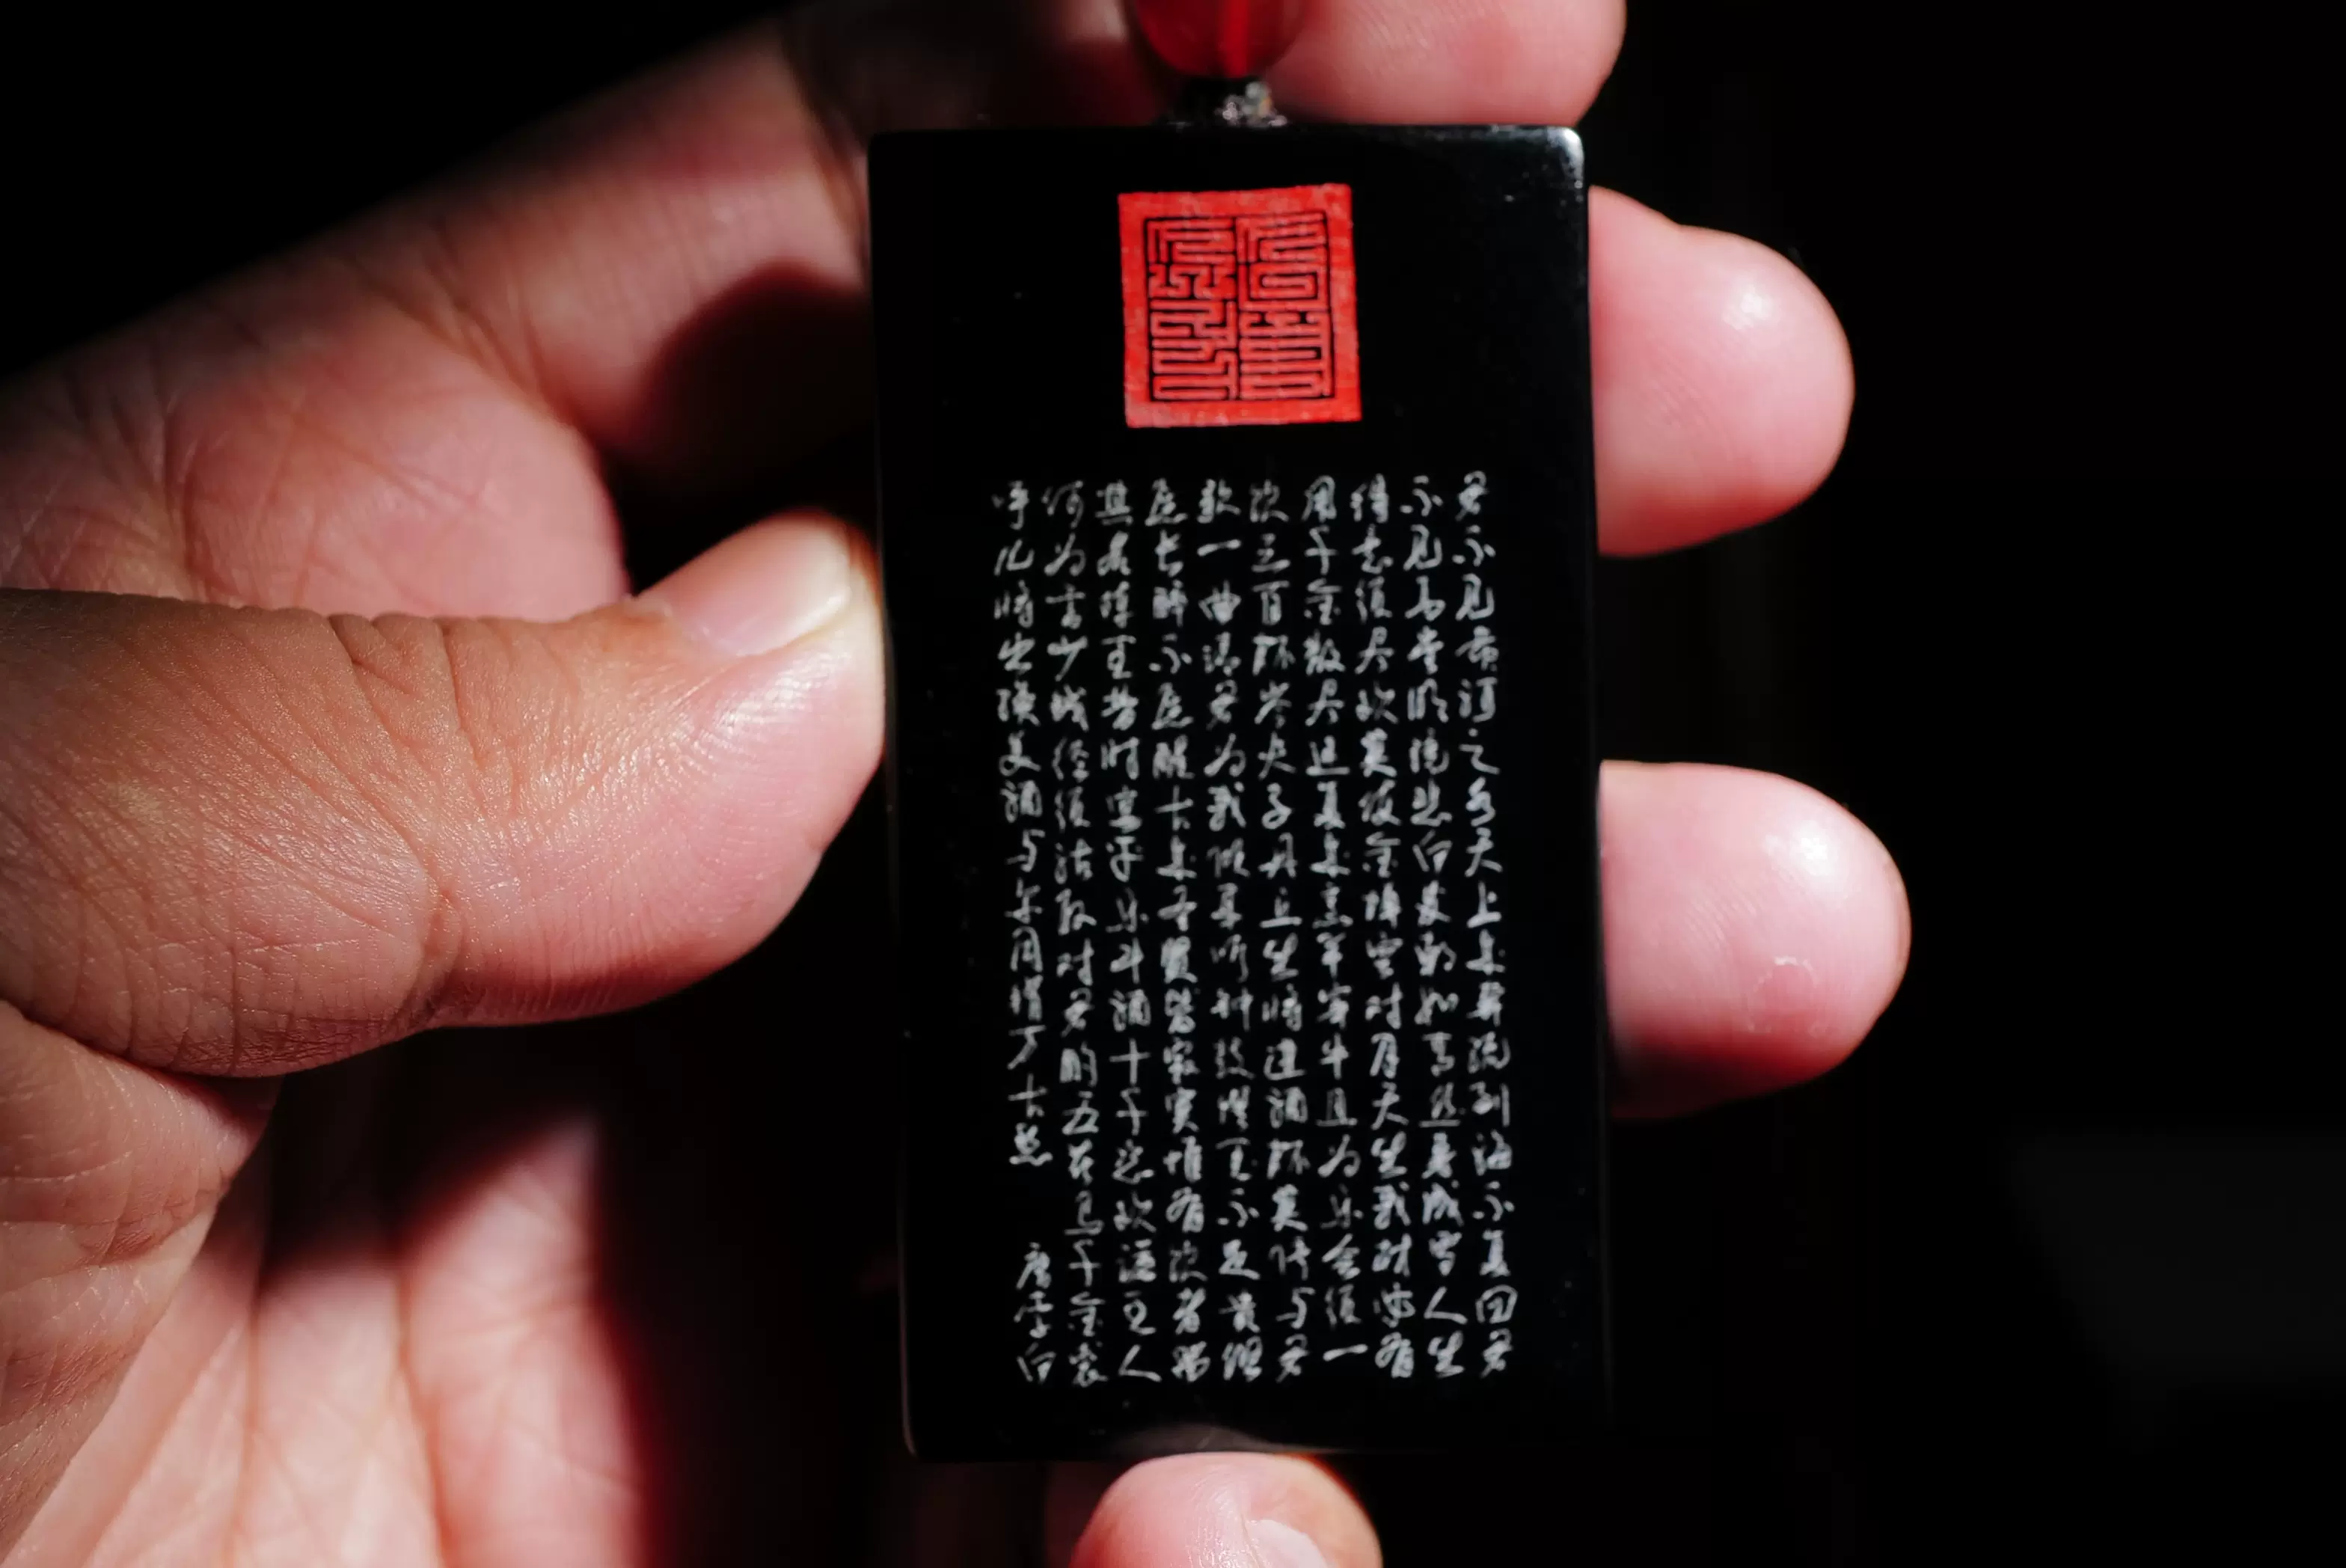 君不见黄河之水天上来奔流到海不复回君
不见高堂明镜悲白发朝如青丝暮成雪人生
得意须尽欢莫使金樽空对月天生我材必有
用千金散尽还复来烹羊宰牛且为乐会须一
饮三百杯岑夫子丹丘生将进酒杯莫停与君
歌一曲请君为我倾耳听钟鼓馔玉不足贵但
愿长醉不愿醒古来圣贤皆寂寞惟有饮者留
其名陈王昔时宴平乐斗酒十千恣欢谑主人
何为言少钱径须沽取对君酌五花马千金裘
呼儿将出换美酒与尔同销万古愁 唐李白